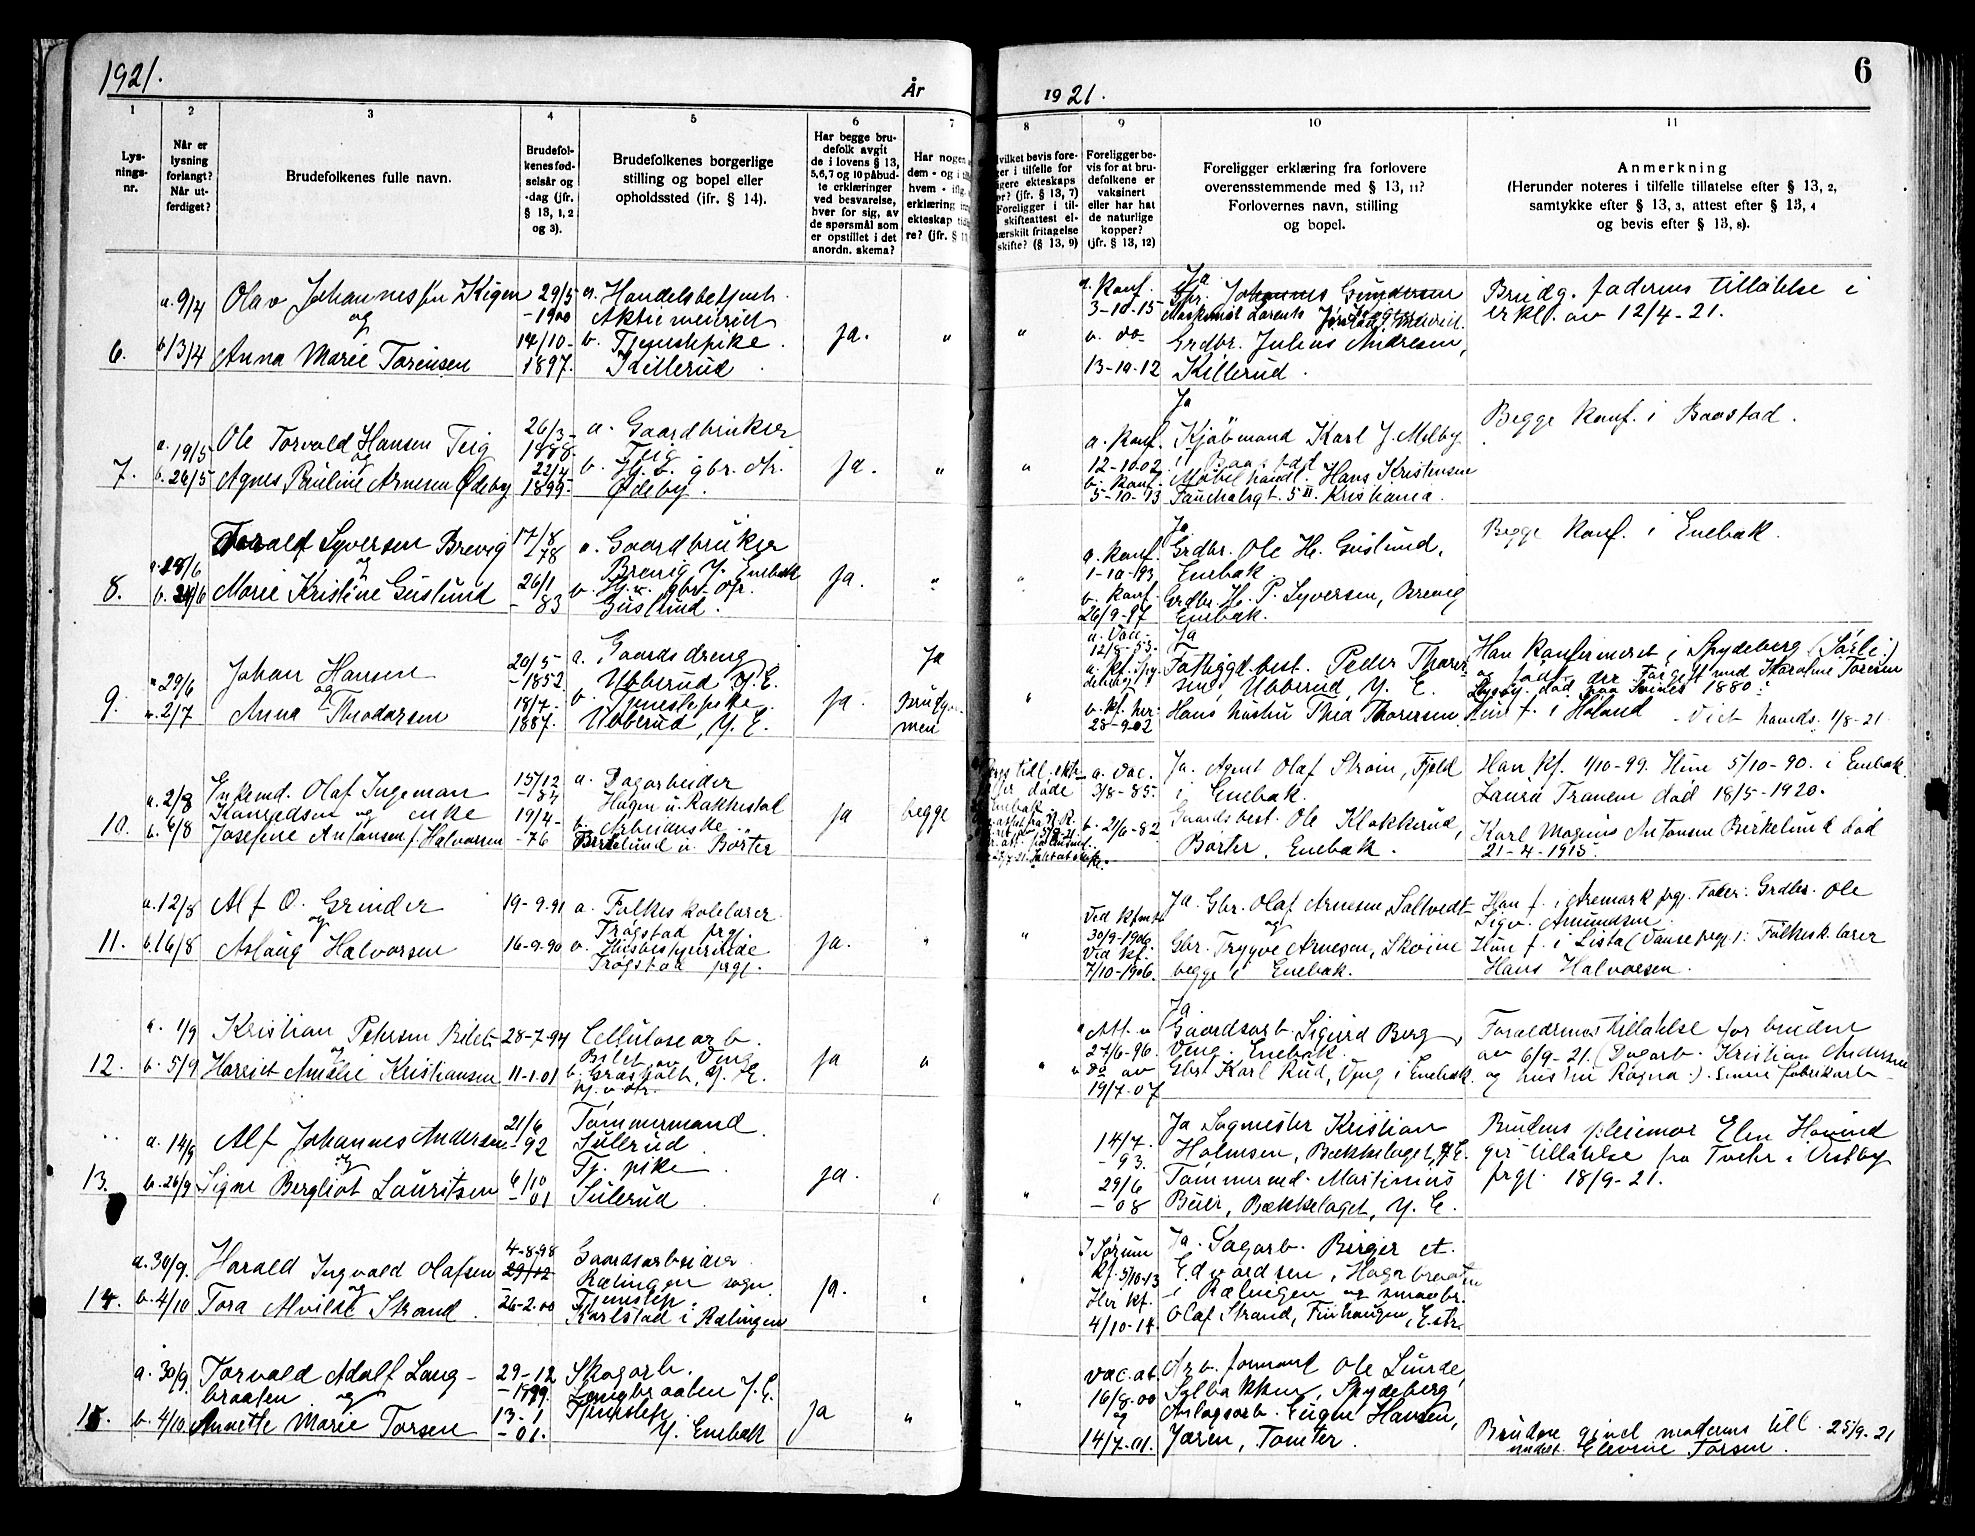 1921.
År
1921.
6
1
2
3
4
5
6
7
8
9
10
11
Lys-
nings-
nr.
Når er
lysning
forlangt?
Når ut-
ferdiget?
Brudefolkenes fulle navn.
Brudefol-
kenes fød-
selsår og
-dag (jfr.
§ 13, 1, 2
og 3).
Brudefolkenes borgerlige
stilling og bopel eller
opholdssted (jfr. § 14).
Har begge bru-
defolk avgit
de i lovens § 13,
5, 6, 7 og 10 påbud-
te erklæringer
ved besvarelse,
hver for sig, av
de spørsmål som
er opstillet i det
anordn. skema?
Har nogen
dem - og i
hvem - ifl.
erklæring
ekteskap
re? (jfr. §
vilket bevis fore-
ger i tilfelle for
ligere ekteskaps
or? (jfr. § 13, 7)
Foreligger i til-
skifteattest el-
særskilt fritagelse
skifte? (§ 13, 9)
Foreligger be-
vis for at bru-
defolkene er
vaksinert
eller har hat
de naturlige
kopper?
(jfr. § 13, 12)
Foreligger erklæring fra forlovere
overensstemmende med § 13, 11?
Forlovernes navn, stilling
og bopel.
Anmerkning
(Herunder noteres i tilfelle tillatelse efter § 13, 2,
samtykke efter § 13, 3, attest efter § 13, 4
og bevis efter § 13, 8).
6.
a. 9/4
b. 13/4
Olav Johannessen Krigen
og
Anna Marie Torensen
29/5
-1900
14/10-
1897.
a. Handelsbetjent
b. Tjenestepike.
Killerud.
ja.
"
"
a. Konf.
3-10-15
b. do
13-10-12
Ja
Gbr. Johannes Gundersen
Grdbr. Julius Andresen,
Killerud.
Brudg. faderens tillatelse i
erkl. av 12/4-21.
7.
a. 19/5
b. 26/5
Ole Torvald Hansen Teig
og
Agnes Pauline Arnesen Ødeby
26/3-
1888.
22/4
1895.
a. Gaardbruker
Teig
b. Hj. v. gbr. dtr.
Ødeby.
ja.
"
"
a. Konf.
12-10-02.
b. Konf.
5-10-13
Ja
Kjøbmand Karl J. Melby
i Baastad
Møbelhandl. Hans Kristensen
5 II. Kristiania.
Begge konf. i Baastad.
8.
a. 18/6
b. 24/6
Torvald Syversen Brevig
og
Marie Kristine Guslund
17/8
-78
26/1
-83
a. Gaardbruker
Brevig Y. Enebak
b. Hj. v. gbr. dtr.
Guslund.
Ja.
"
"
a. Konf.
1-10-93
b. Konf.
26/9-97
Ja
Grdbr. Ole H. Guslund,
Enebak.
Grdbr. H. P. Syversen, Brevig
Enebak.
Begge Konf. i Enebak.
9.
a. 29/6
b. 2/7
Johan Hansen
og
Anna Theodorsen
20/5-
-1852.
18/7-
1887.
a. Gaardsdreng
Ubberud Y. E.
b. Tjenestepike
Ubberud, Y. E.
ja.
Ja
Brudgom-
men
"
a. Vac.
12/8-53.
b. kf. her.
28-9-02
Ja
Fattiggd. best. Peder Thorer-
sen, Ubberud, Y. E.
Hans hustru Thea Thoresen.
Han Konfirmeret i Spydeberg
og født der. Karoline Toresen
død 1880.
Hun f. i Høland. Viet hands. 1/8-21
10.
a. 2/8
b. 6/8
Enkemd. Olaf Ingeman
og enke
Josefine Antonsen f. Halvorsen
15/12
-84
19/4-
-76
a. Dagarbeider
Hagen u. Rakkestad
b. Arbeiderske
Birkelund u. Børter
ja
begge
a. Vac.
3/8-85.
b. 2/6-82
Ja. Agent Olaf Strøm, Fjeld
i Enebak.
Gaardsbest. Ole Klokkerud,
Børter, Enebak.
Han Kf. 1/10-99. Hun 5/10-90. i Enebak.
Laura Tranem død 18/5-1920.
Karl Magnus Antonsen Birkelund død
21-4-1915.
11.
a. 12/8
b. 16/8
Alf O. Grinder
og
Aslaug Halvorsen
19-9-91
16-9-90
a. Folkeskolelærer
Trøgstad prgj.
b. Husbestyrerinde
Trøgstad prgj.
Ja.
"
"
Ved Kfatt.
30/9-1906
Ved kf.
7/10-1906.
Ja. Gbr. Olaf Arnesen Saltvedt
og
Gbr. Trygve Arnesen, Skøien
begge i Enebak.
Han f. i Aremark prgj. Fader: Grdbr. Ole
Sigv. Amundsen.
Hun f. i Lista (Vanse prgj.): Folkesk.lærer
Hans Halvorsen.
12.
a. 1/9
b. 5/9
Kristian Petersen Bilet
og
Harriet Amalie Kristiansen
28-7-94
11-1-01
Cellulosearb.
Bilet av Veng
b. Græsholt, Y. E.
hj. v. dtr.
ja
"
"
a. Att. v.
27/6-96.
b. do av
19/7-07
Ja
Gaardsarb. Sigurd Berg,
Veng. Enebak.
Gbr. Karl Rud, Veng i Enebak.
Forældrenes tillatelse for bruden
av 6/9-21. (Dagarb. Kristian Andersen
og hustru Ragna.)
13.
a. 14/9
b. 26/9
Alf Johannes Andersen
og
Signe Bergliot Lauritsen
21/6
-92
6/10
-01
Tømmermand.
Sulerud
Tj. pike
Sulerud.
ja.
"
"
14/7.
-93.
29/6
-08
Ja Sagmester Kristian
Holmsen, Bækkelaget, Y. E.
Tømmermd. Martinius
Beier, Bækkelaget, Y. E.
Brudens pleiemor Elen Hovind
gir tillatelse fra Tveter i Vestby
prgj. 18/9-21.
14.
a. 30/9.
b. 4/10
Harald Ingvald Olafsen
og
Tora Alvilde Strand.
4-8-98
29/12
26-2-00
Gaardsarbeider
Rælingen sogn.
Tjenestep.
Karlstad i Rælingen
ja.
"
"
I Sørum
kf. 5/10-13
Her kf.
4/10-14.
Ja. Sagarb. Birger et.
Edvardsen, Hagabraaten
i Rælingen og smaabr.
Olaf Strand, Finhaugen, E.
15.
a. 30/9.
b. 4/10
Torvald Adolf Lang-
braaten og
Annette Marie Torsen
29-12
-1899.
13-1
-01.
Skogarb.
Langbraaten Y. E.
Tjenestep.
Y. Enebak
ja
"
"
Vac. at.
16/8-00
og
14/7-01.
Arb. formand Ole Lunde,
Spydeberg
Anlægsarb. Eugen Hansen,
Jaren, Tomter.
25/9-21
Elevine Torsen.